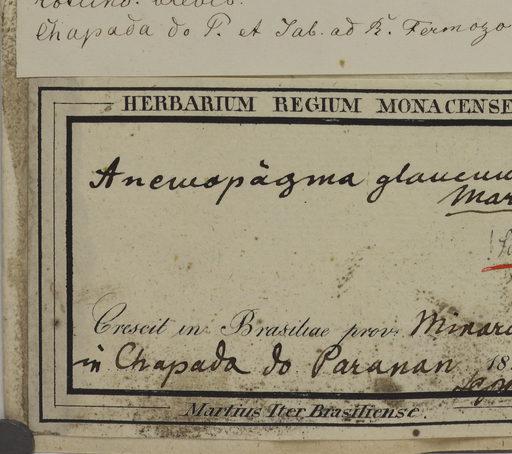 Chapada do P. et Tab. ad R. Fermozo
HERBARIUM REGIUM MONACENSE
Anemopægma glaucum
Mar
Crescit in Brasiliae prov. Minaru
in Chapada do Paranan 18
Martius Iter Brasiliense.